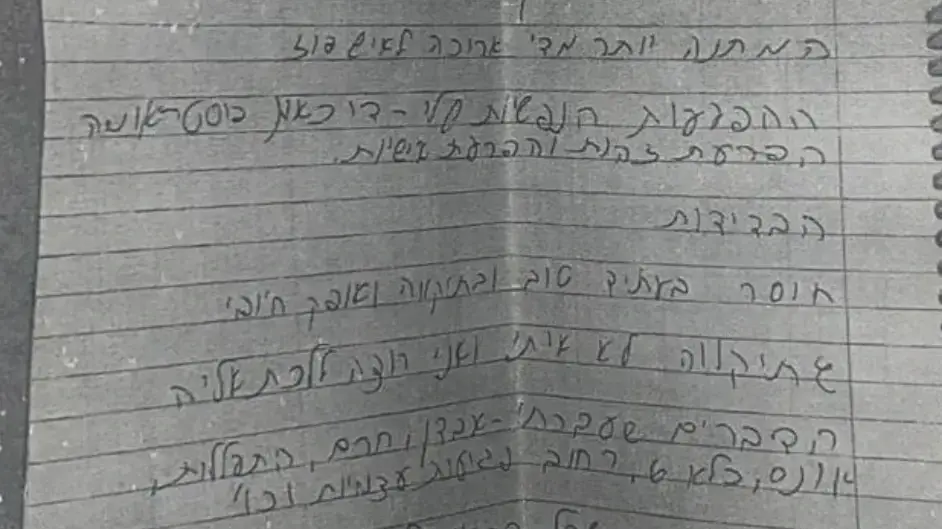 המתנה יותר מדי ארוכה לאישפוז
ההפרעות הנפשיות שלי - דיכאון פוסט טראומה
הפרעת זהות והפרעת אישיות.
הבדידות
חוסר בעתיד טוב ובתיקווה ואופק חיובי
שתיקווה לא איתי ואני רוצה ללכת אליה
הדברים שעברתי - אבדן, חרם, התעללות,
אונס, כלא 6, רחוב פגיעות עצמיות וכו'